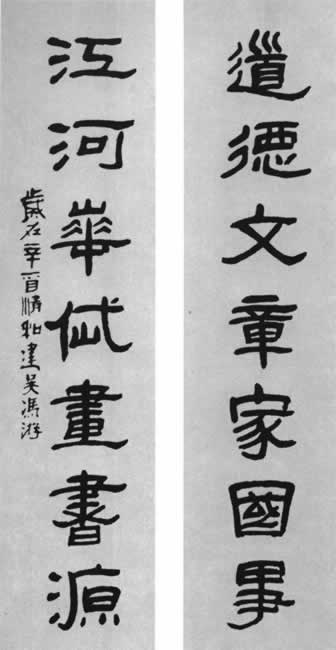 道德文章家國事
江河華岱畫書源
歲在辛酉清和建吳馮游